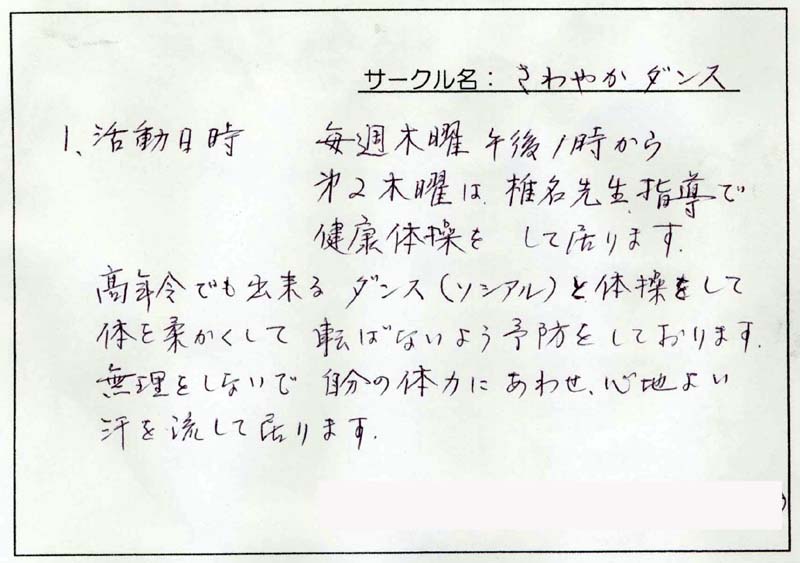 サークル名：さわやかダンス
1、活動日時 毎週木曜 午後1時から
第2木曜は、椎名先生、指導で
健康体操を して居ります。
高年令でも出来る ダンス(ソシアル)と体操をして
体を柔かくして 転ばないよう予防をしております。
無理をしないで 自分の体力にあわせ、心地よい
汗を流して居ります。
)